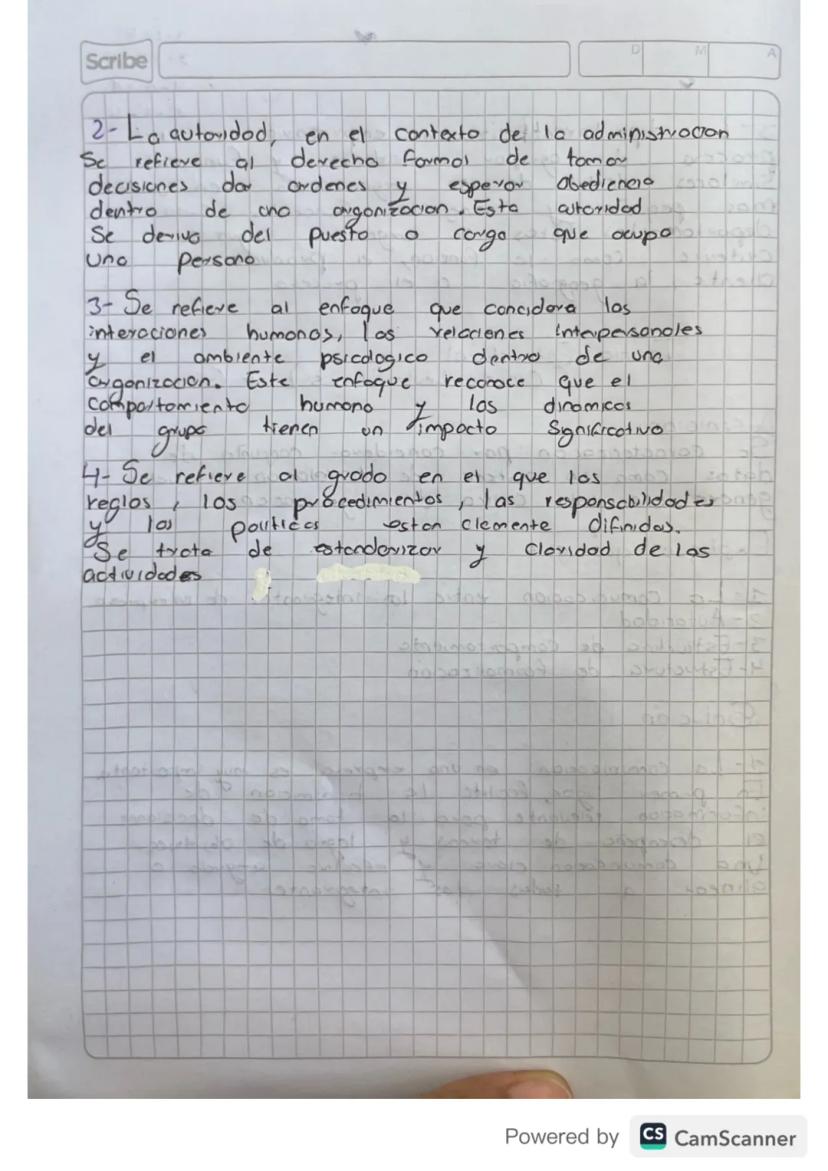 Scribe
D M A
2- La autoridad, en el contexto de la administracion
Se refiere al derecho formal de tomar
decisiones dar ordenes y esperar obediencia
dentro de una organizacion. Esta autoridad
Se deriva del puesto o cargo que ocupa
una persona
3- Se refiere al enfoque que concidera las
interaciones humanas, las relaciones interpersonales
y el ambiente psicologico dentro de una
organizacion. Este enfoque reconoce que el
comportamiento humano y las dinamicas
del grupo tienen un impacto significativo
4- Se refiere al grado en el que las
reglas, los procedimientos, las responsabilidades
y las politicas estan clemente difinidas.
Se trata de estandarizar y claridad de las
actividades
Powered by CS CamScanner